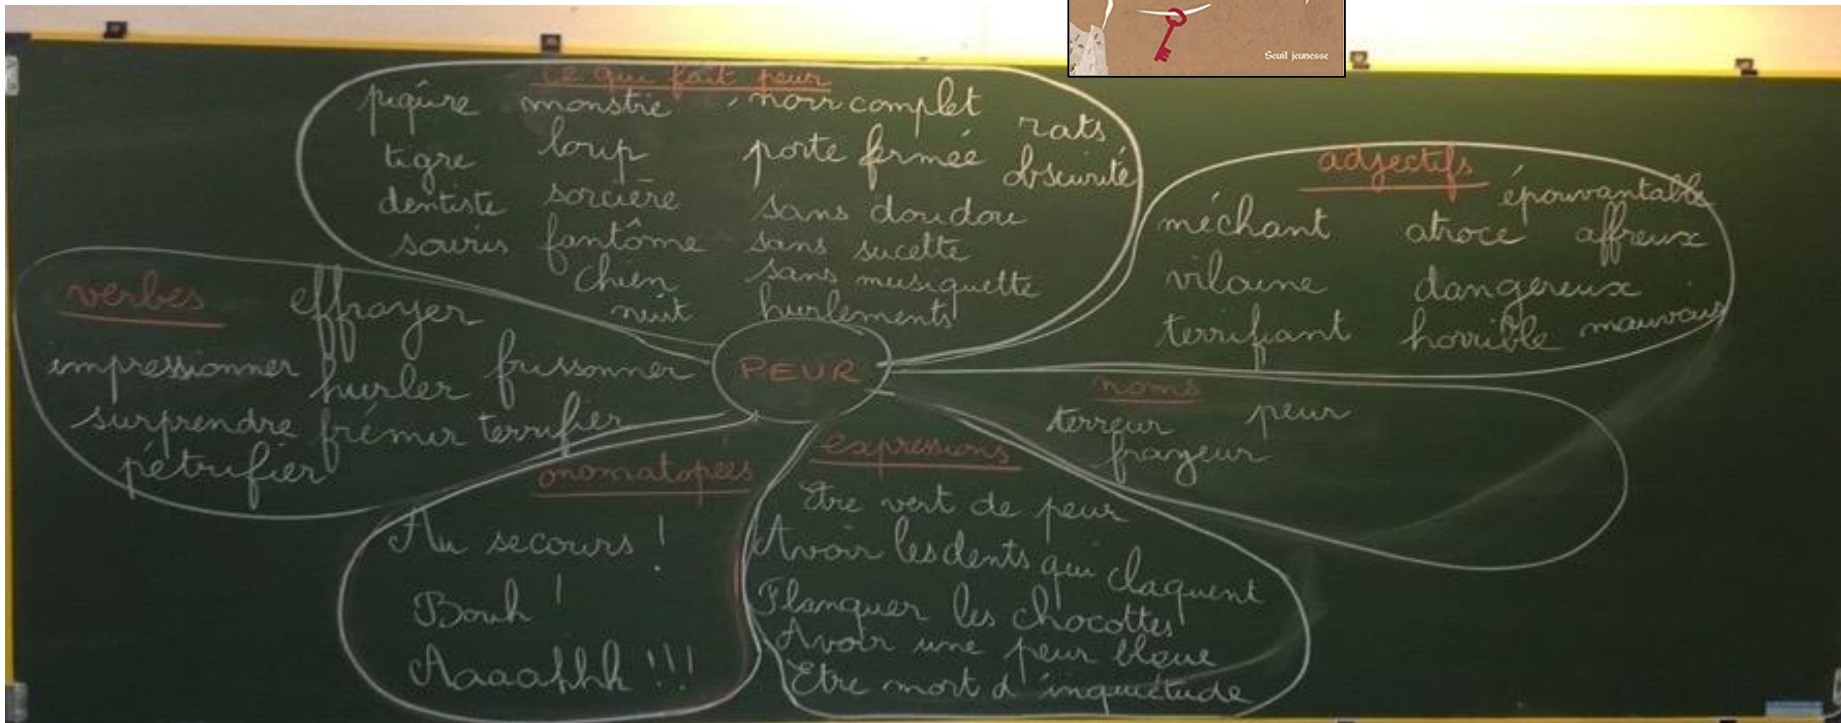 Seuil jeunesse
ce qui fait peur
piqûre monstre noir complet
rats
tigre loup porte fermée obscurité
dentiste sorcière sans doudou
souris fantôme sans sucette
chien sans musiquette
nuit hurlements
adjectifs
épouvantable
méchant atroce affreux
vilaine dangereux
terrifiant horrible mauvais
verbes effrayer
impressionner hurler frissonner
surprendre frémir terrifier
pétrifier
PEUR
noms
terreur peur
frayeur
onomatopées
Au secours !
Bouh !
Aaaahhh !!!
expressions
Etre vert de peur
Avoir les dents qui claquent
Flanquer les chocottes
Avoir une peur bleue
Etre mort d'inquiétude